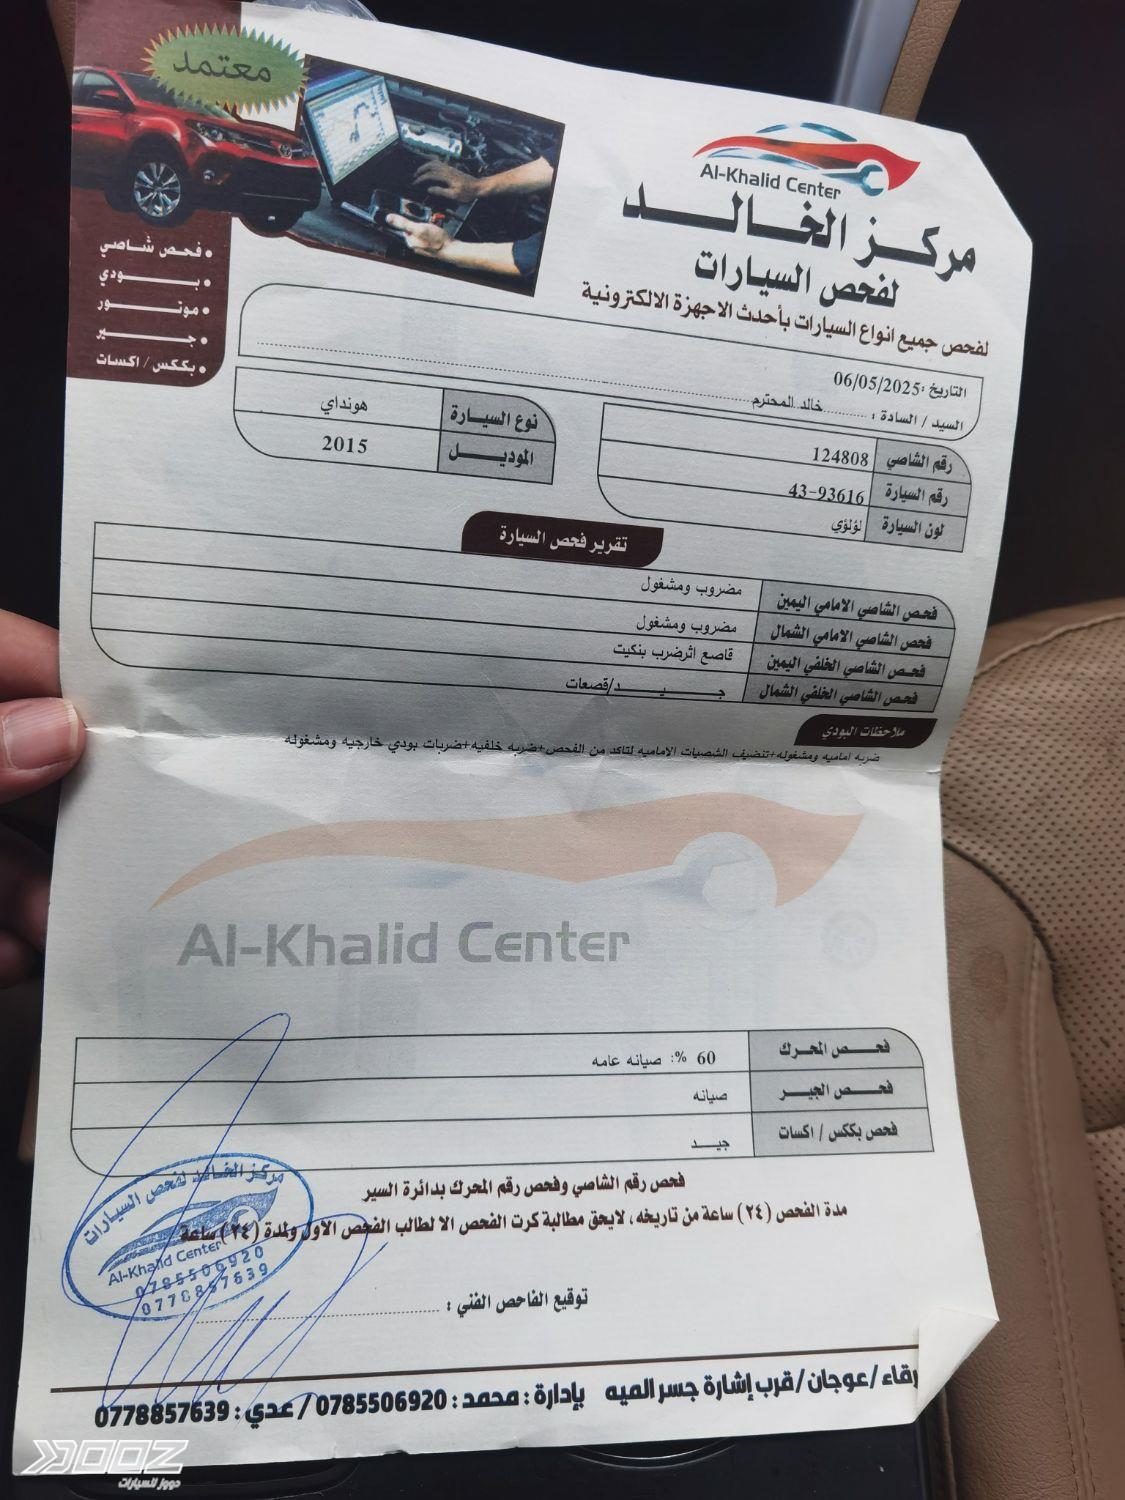 معتمد
Al-Khalid Center
مركز الخالد
لفحص السيارات
لفحص جميع انواع السيارات بأحدث الاجهزة الالكترونية
• فحص شاصي
• بودي
• موتور
• جير
• بككس / اكسات
التاريخ : 06/05/2025
السيد / السادة : خالد المحترم
رقم الشاصي 124808
رقم السيارة 43-93616
لون السيارة لؤلؤي
نوع السيارة هونداي
الموديل 2015
تقرير فحص السيارة
فحص الشاصي الامامي اليمين مضروب ومشغول
فحص الشاصي الامامي الشمال مضروب ومشغول
فحص الشاصي الخلفي اليمين قاصع اثرضرب بنكيت
فحص الشاصي الخلفي الشمال جيد/قصعات
ملاحظات البودي
ضربه اماميه ومشغوله+تنضيف الشصيات الاماميه لتاكد من الفحص+ضربه خلفيه+ضربات بودي خارجيه ومشغوله
Al-Khalid Center
فحص المحرك 60 %: صيانه عامه
فحص الجير صيانه
فحص بككس / اكسات جيد
فحص رقم الشاصي وفحص رقم المحرك بدائرة السير
مدة الفحص (٢٤) ساعة من تاريخه ، لايحق مطالبة كرت الفحص الا لطالب الفحص الاول ولمدة (٢٤) ساعة
مركز الخالد لفحص السيارات
Al-Khalid Center
0785506920
0778857639
توقيع الفاحص الفني :
رقاء/عوجان/قرب إشارة جسر الميه بإدارة : محمد : 0785506920 / عدي : 0778857639
DOOZ
دووز للسيارات